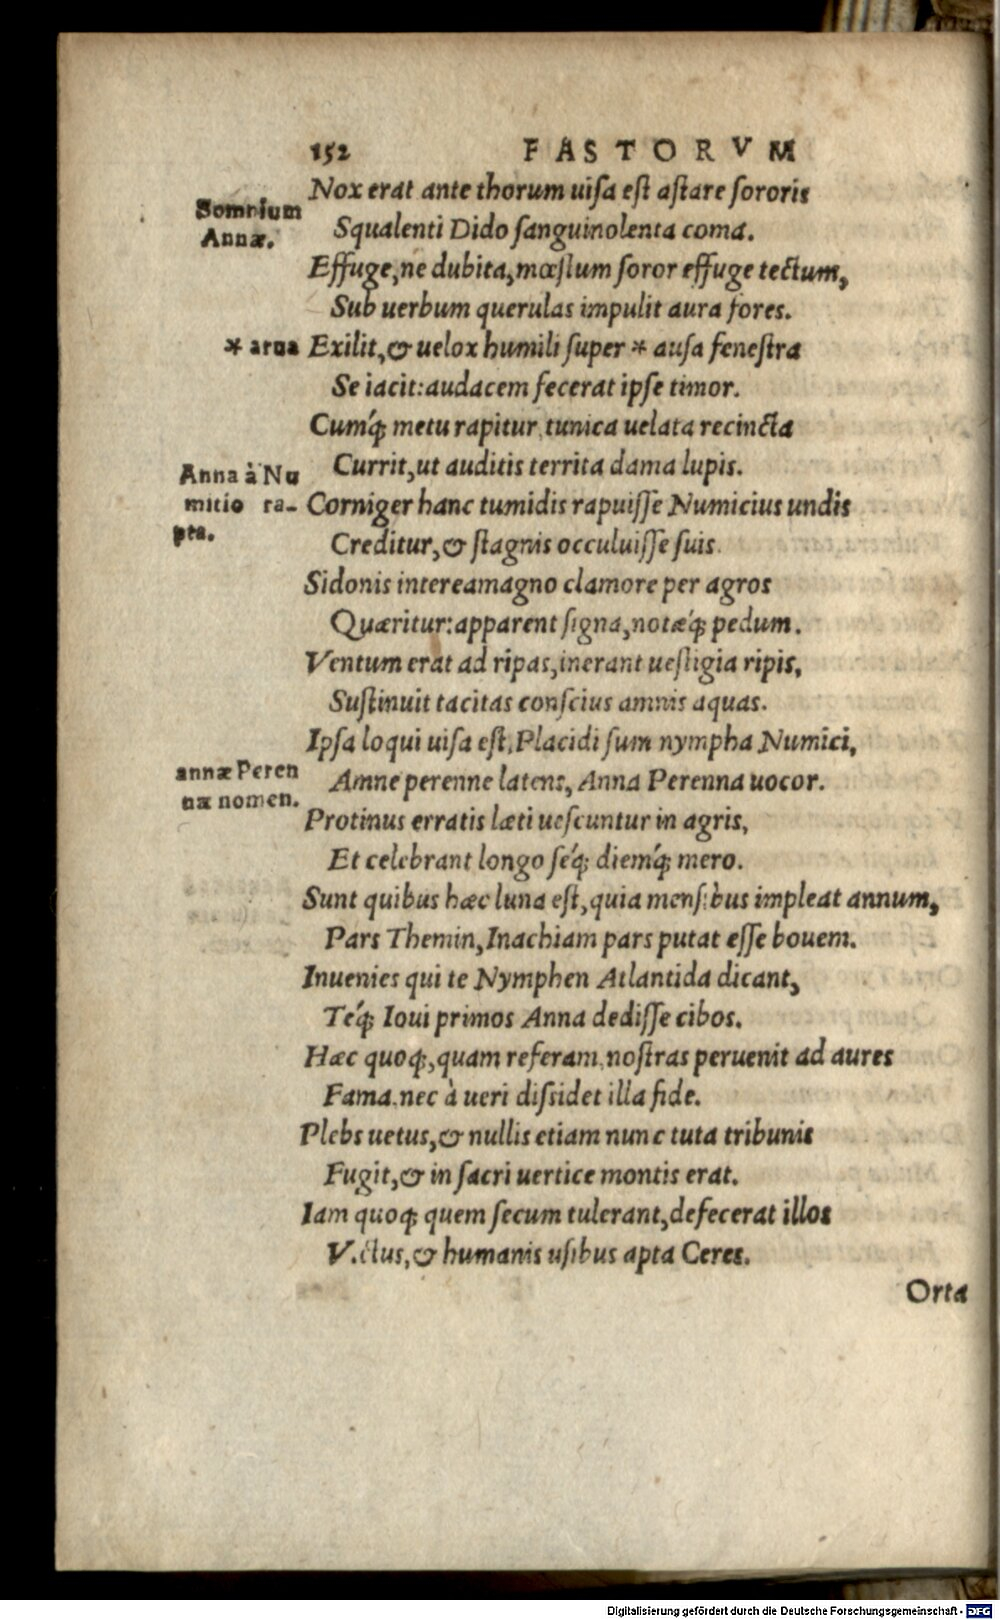 152 FASTORVM
Nox erat ante thorum uisa est astare sororis
Somnium
Squalenti Dido sanguinolenta coma.
Annæ.
Effuge, ne dubita, mœstum soror effuge tectum,
Sub uerbum querulas impulit aura fores.
* arua Exilit, & uelox humili super * ausa fenestra
Se iacit: audacem fecerat ipse timor.
Cumq́; metu rapitur, tunica uelata recincta
Anna à Nu
Currit, ut auditis territa dama lupis.
mitio ra- Corniger hanc tumidis rapuisse Numicius undis
pta.
Creditur, & stagnis occuluisse suis.
Sidonis interea magno clamore per agros
Quæritur: apparent signa, notæq́; pedum.
Ventum erat ad ripas, inerant uestigia ripis,
Sustinuit tacitas conscius amnis aquas.
Ipsa loqui uisa est, Placidi sum nympha Numici,
annæ Peren
Amne perenne latens, Anna Perenna uocor.
næ nomen.
Protinus erratis læti uescuntur in agris,
Et celebrant longo seq́; diemq́; mero.
Sunt quibus hæc luna est, quia mensibus impleat annum,
Pars Themin, Inachiam pars putat esse bouem.
Inuenies qui te Nymphen Atlantida dicant,
Teq́; Ioui primos Anna dedisse cibos.
Hæc quoq;, quam referam, nostras peruenit ad aures
Fama, nec à ueri dissidet illa fide.
Plebs uetus, & nullis etiam nunc tuta tribunis
Fugit, & in sacri uertice montis erat.
Iam quoq; quem secum tulerant, defecerat illos
Victus, & humanis usibus apta Ceres.
Orta
Digitalisierung gefördert durch die Deutsche Forschungsgemeinschaft - DFG